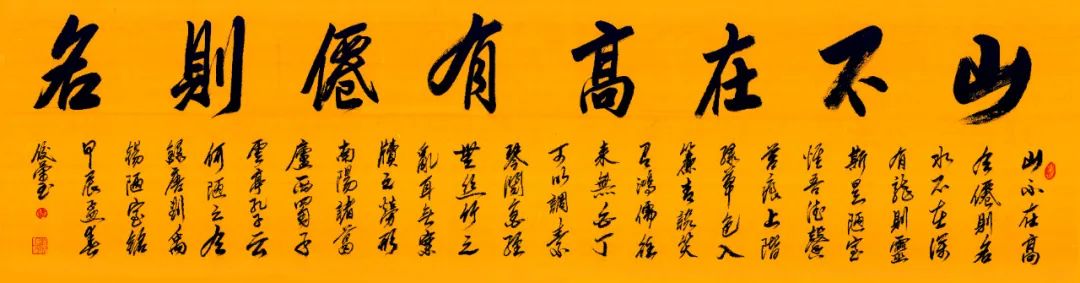 山不在高有僊則名
山不在高
有僊則名
水不在深
有龍則靈
斯是陋室
惟吾德馨
苔痕上階
綠草色入
簾青談笑
有鴻儒往
來無白丁
可以調素
琴閱金經
無絲竹之
亂耳無案
牘之勞形
南陽諸葛
廬西蜀子
雲亭孔子云
何陋之有
錄唐劉禹
錫陋室銘
甲辰孟春